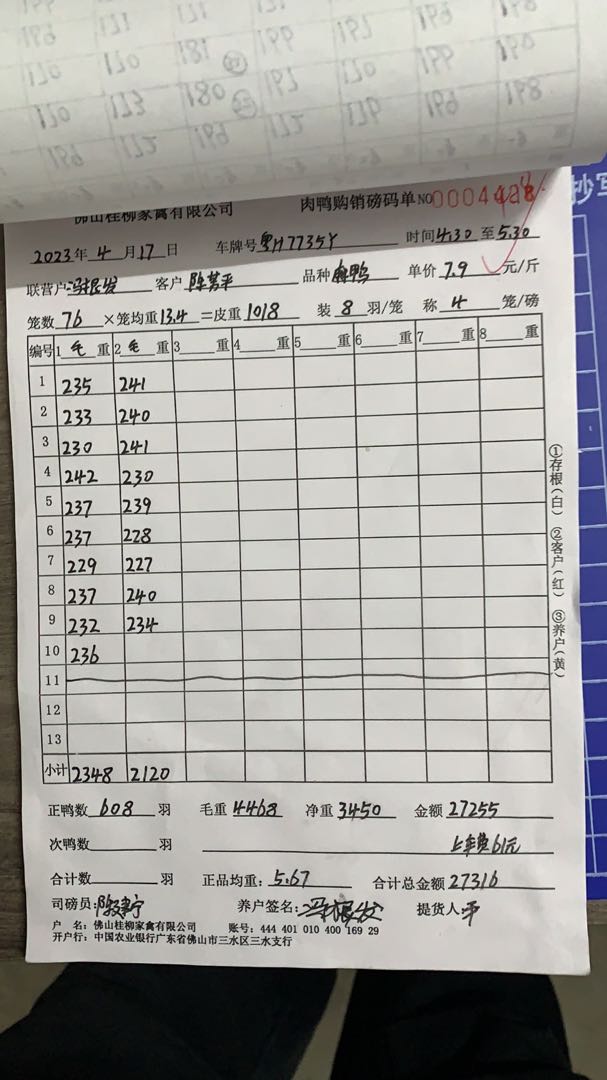 佛山桂柳家禽有限公司 肉鸭购销磅码单 NO 0004428
2023年 4月 17日 车牌号 粤H7735Y 时间 4.30 至 5.30
联营户 冯根发 客户 品种 鸭 单价 7.9 元/斤
笼数 76 ×笼均重 13.4 =皮重 1018 装 8 羽/笼 称 4 笼/磅
编号 1 毛 重 2 毛 重 3 重 4 重 5 重 6 重 7 重 8 重
1 235 241
2 233 240
3 230 241
4 242 230
5 237 239
6 237 228
7 229 227
8 237 240
9 232 234
10 236
11
12
13
小计 2348 2120
①存根(白) ②客户(红) ③养户(黄)
正鸭数 608 羽 毛重 4468 净重 3450 金额 27255
次鸭数 羽 上车费61元
合计数 羽 正品均重: 5.67 合计总金额 27316
司磅员: 养户签名: 冯根发 提货人: 平
户 名: 佛山桂柳家禽有限公司 账号: 444 401 010 400 169 29
开户行: 中国农业银行广东省佛山市三水区三水支行
抄写